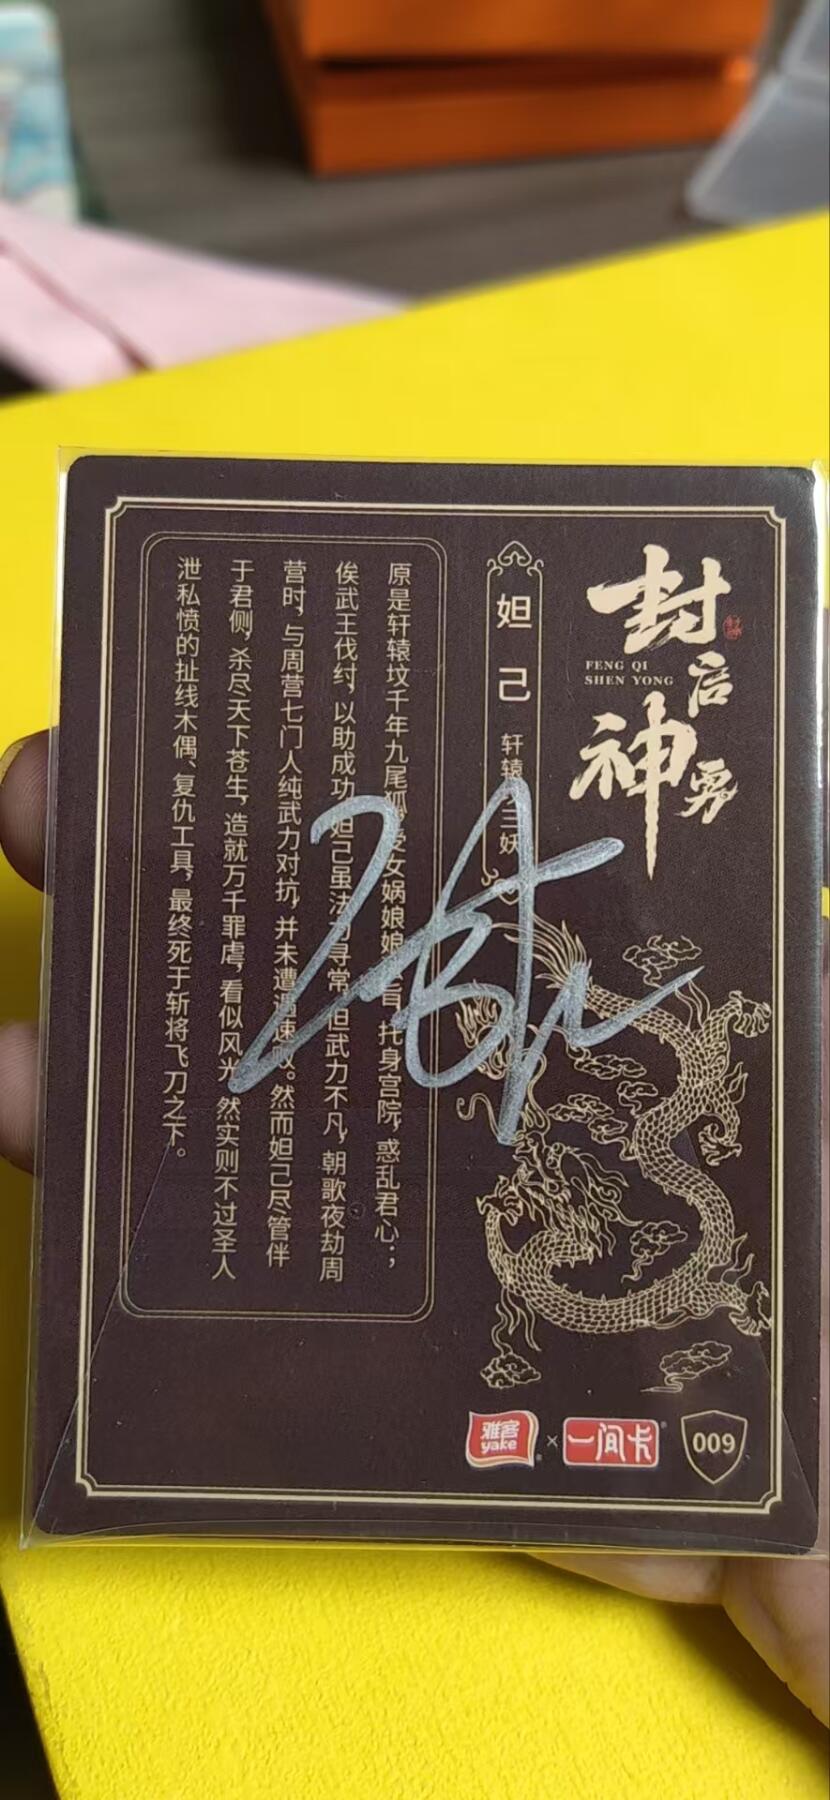 封启神勇
FENG QI
SHEN YONG
妲己 轩辕 三妖
原是轩辕坟千年九尾狐 受女娲娘娘 旨，托身宫院，惑乱君心；
俟武王伐纣，以助成功 妲己虽法 寻常 但武力不凡，朝歌夜劫周
营时，与周营七门人纯武力对抗，并未遭遇速败。然而妲己尽管伴
于君侧，杀尽天下苍生，造就万千罪虐，看似风光 然实则不过圣人
泄私愤的扯线木偶、复仇工具，最终死于斩将飞刀之下。
雅客
yake
×
一间卡
009